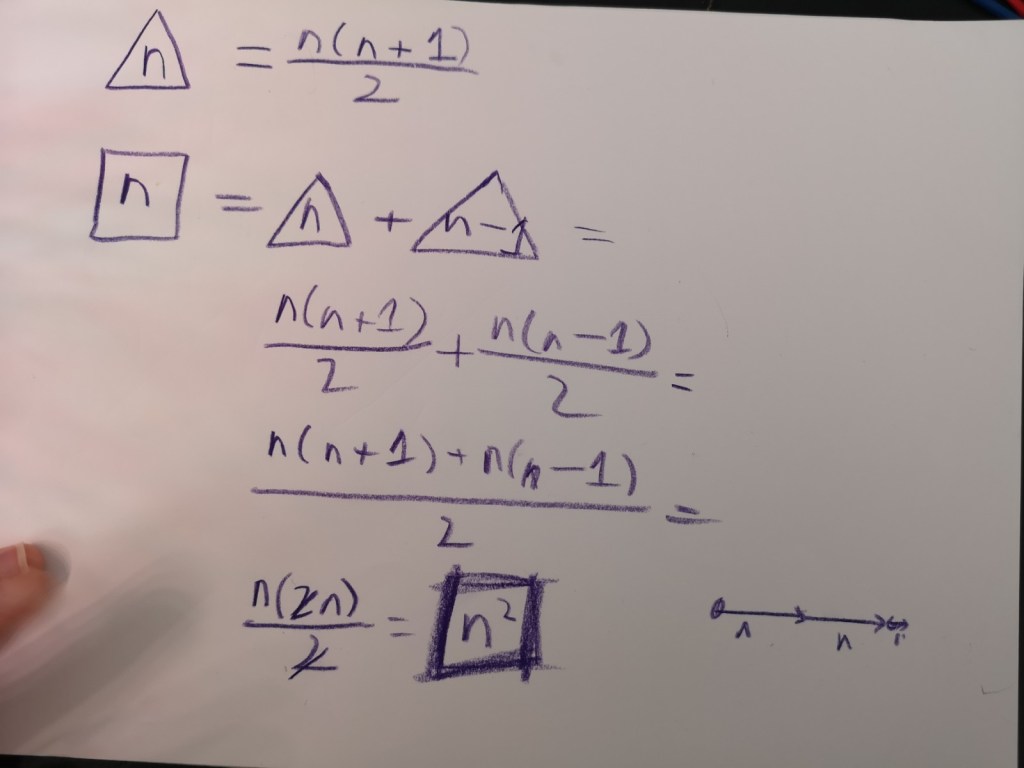 △n = n(n+1)/2
□n = △n + △n-1 =
n(n+1)/2 + n(n-1)/2 =
n(n+1)+n(n-1)/2 =
n(2n)/2 = n²
n n